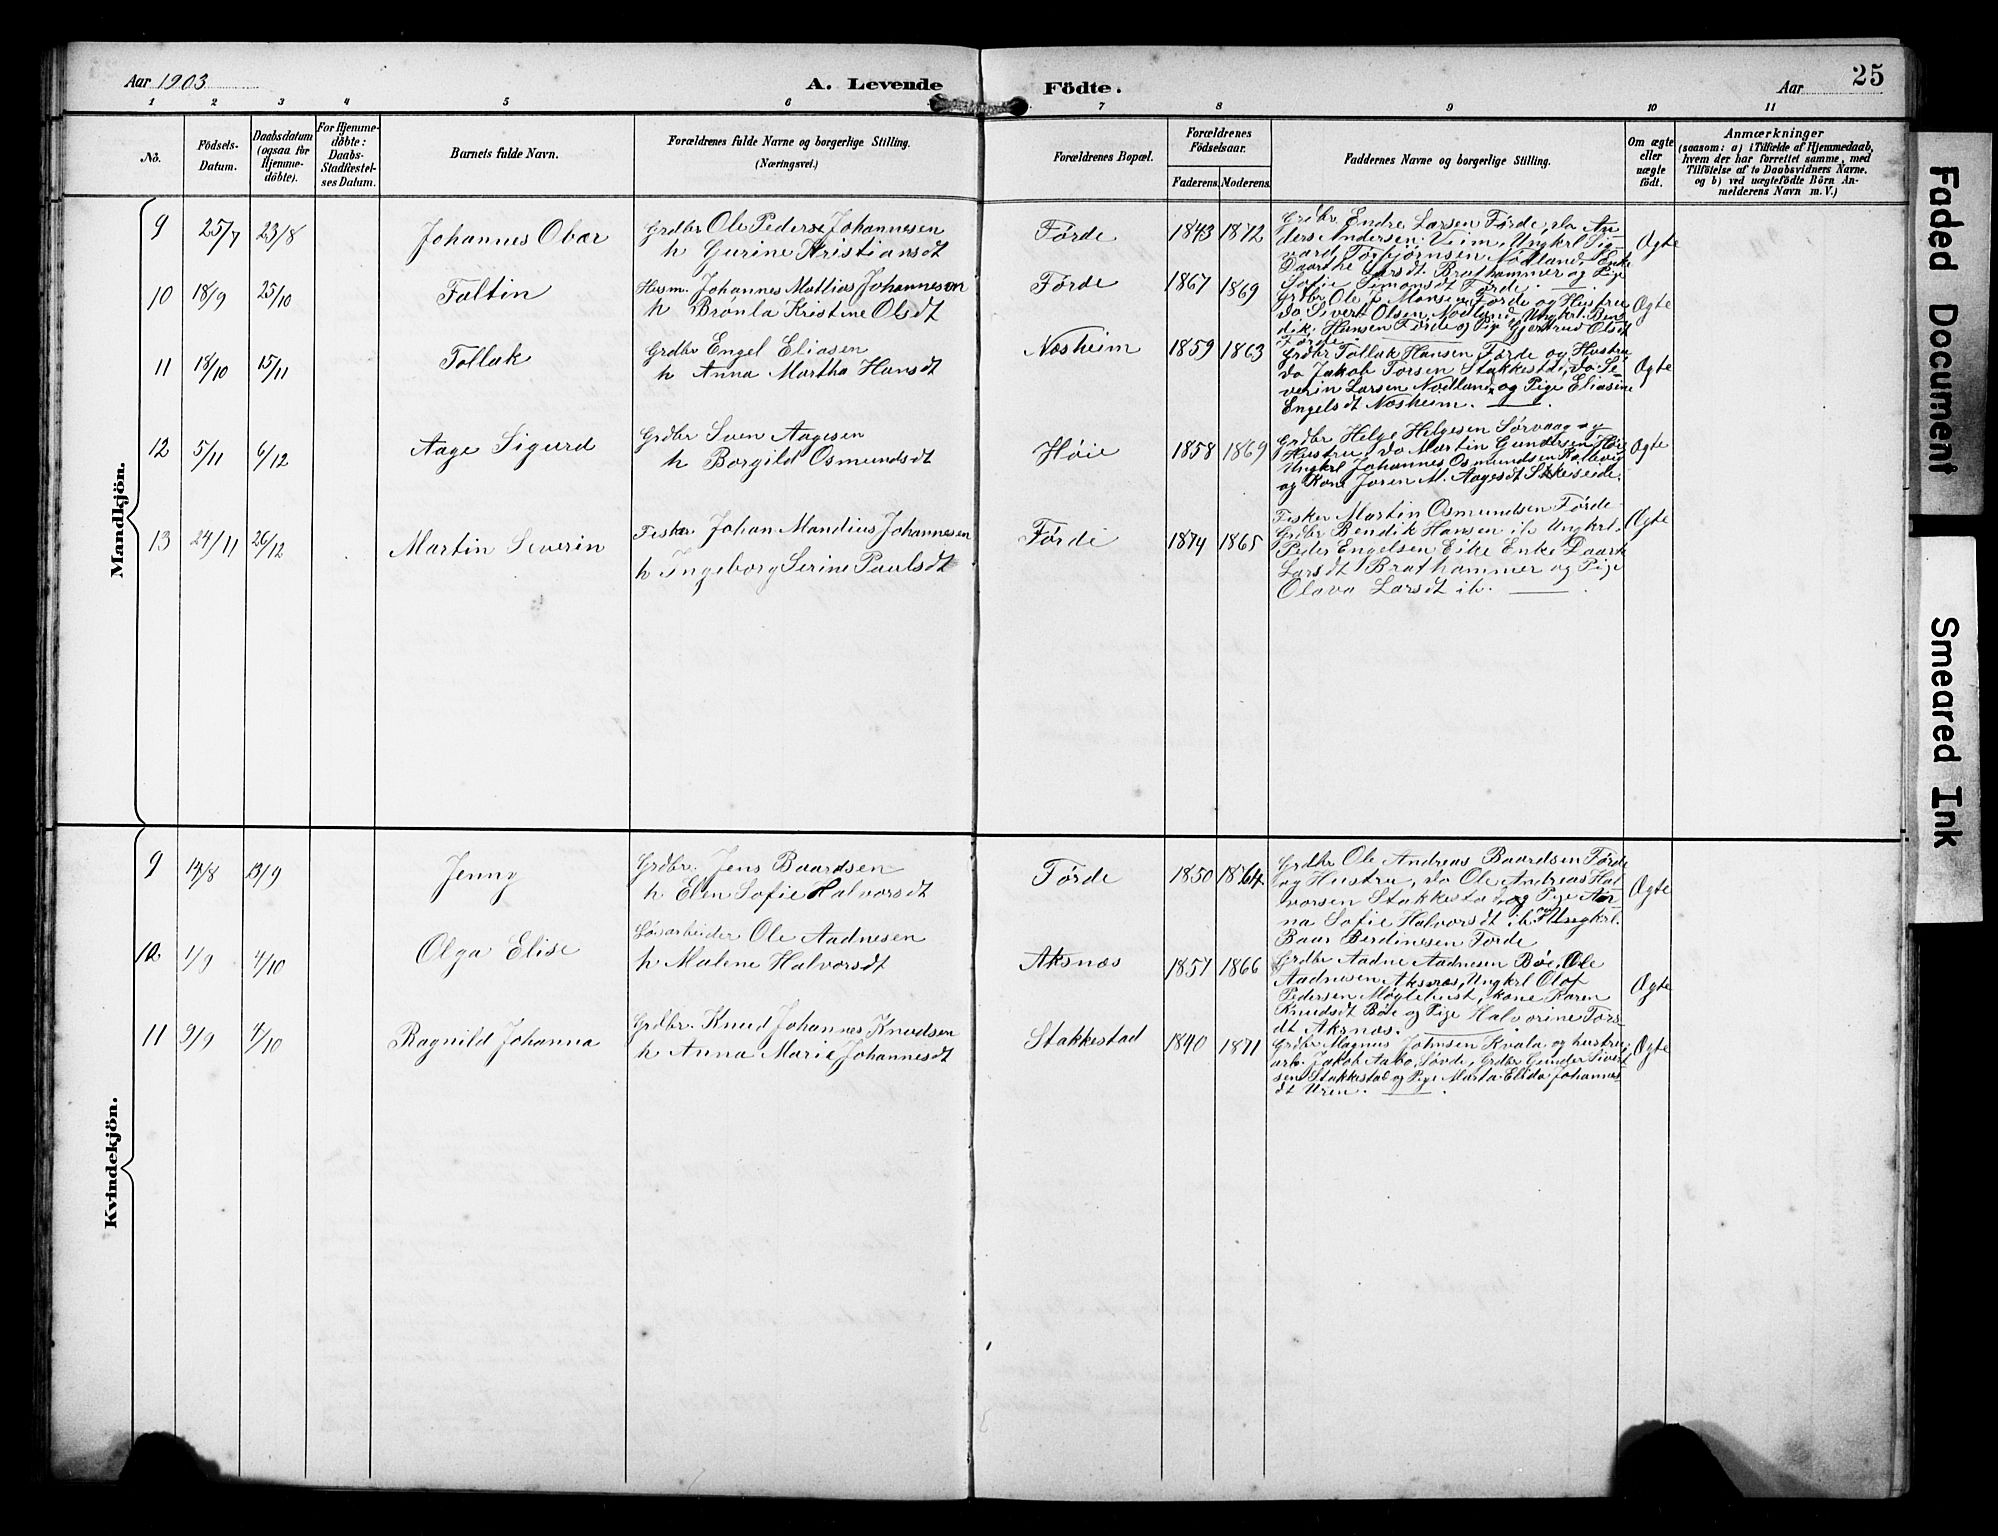 Aar 1903
A. Levende Födte.
Aar
25
1 2 3 4 5 6 7 8 9 10 11
No.
Födsels-Datum.
Daabsdatum (ogsaa for Hjemme-döbte).
For Hjemme-döbte: Daabs-Stadfæstel-ses Datum.
Barnets fulde Navn.
Forældrenes fulde Navne og borgerlige Stilling.
(Næringsvei.)
Forældrenes Bopæl.
Forældrenes Födselsaar.
Faderens. Moderens.
Faddernes Navne og borgerlige Stilling.
Om ægte eller uægte födt.
Anmærkninger
(saasom: a) i Tilfælde af Hjemmedaab, hvem der har forrettet samme, med Tilföielse af to Daabsvidners Navne. og b) ved uægtefödte Börn Anmelderens Navn m. V.)
Mandkjön.
9 25/7 23/8 Johannes Obar
Grdbr Ole Peder Johannesen
h Gurine Kristiansdt
Førde 1843 1872
Grdbr Endre Larsen Førde, do An-
ders Andersen Veim, Ungkrl Sig-
vard Torbjørnsen Nodland, Enke
Daarthe Larsdt Brathammer og Pige
Sofie Simonsdt Førde.
Ægte
10 18/9 25/10 Faltin
Husm. Johannes Mathias Johannesen
h Brønla Kristine Olsdt
Førde 1867 1869
Grdbr Ole J. Monsen Førde og Hustru
do Sivert Olsen Nodland, Ungkrl. Ben-
dik Hansen Førde og Pige Gjertrud Olsdt
Førde.
Ægte
11 18/10 15/11 Tollak
Grdbr Engel Eliasen
h Anna Martha Hansdt
Næsheim 1859 1863
Grdbr Tollak Hansen Førde og Hustru
do Jakob Torsen Stakkestd, do Se-
verin Larsen Nodland og Pige Eliasine
Engelsdt Næsheim.
Ægte
12 5/11 6/12 Aage Sigurd
Grdbr Sven Aagesen
h Borgild Osmundsdt
Høie 1858 1869
Grdbr Helge Helgesen Sørvaag og
Hustru, do Martin Gundersen Høie
Ungkrl Johannes Osmundsen
og Kone Joren M. Aagesdt
Ægte
13 24/11 26/12 Martin Severin
Fisker Johan Mandius Johannesen
h Ingeborg Serine Paulsdt
Førde 1874 1865
Fisker Martin Osmundsen Førde
Grdbr Bendik Hansen ib. Ungkrl.
Peder Engelsen Eike Enke Daart
Larsdt Brathammer og Pige
Olava Larsdt ib.
Ægte
Kvindekjön.
9 14/8 13/9 Jenny
Grdbr. Jens Baardsen
h Elen Sofie Halvorsdt
Førde 1850 1864
Grdbr Ole Andreas Baardsen Førde
og Hustru, do Ole Andreas Hal-
vorsen Stakkestad og Pige An-
na Sofie Halvorsdt ib og Ungkrl.
Baar Berdinesen Førde
Ægte
10 1/9 4/10 Olga Elise
Løsarbeider Ole Aadnesen
h Malene Halvorsdt
Aksnæs 1857 1866
Grdbr Aadne Aadnesen Bøe, Ole
Aadnesen Aksnæs, Ungkrl Olaf
Pedersen Møgleheist, kone Karen
Knudsdt Bøe og Pige Halvorine Tors-
dt Aksnæs.
Ægte
11 9/9 4/10 Ragnild Johanna
Grdbr. Knud Johannes Knudsen
h Anna Marie Johannesdt
Stakkestad 1840 1871
Grdbr Magnus Johnsen Kvala og hustru,
arb. Jakob Aabo, Søvde, Grdbr Gunder Sivert-
sen Stakkestad og Pige Marta Elida Johannes-
dt Uren.
Ægte
Faded Document
Smeared Ink